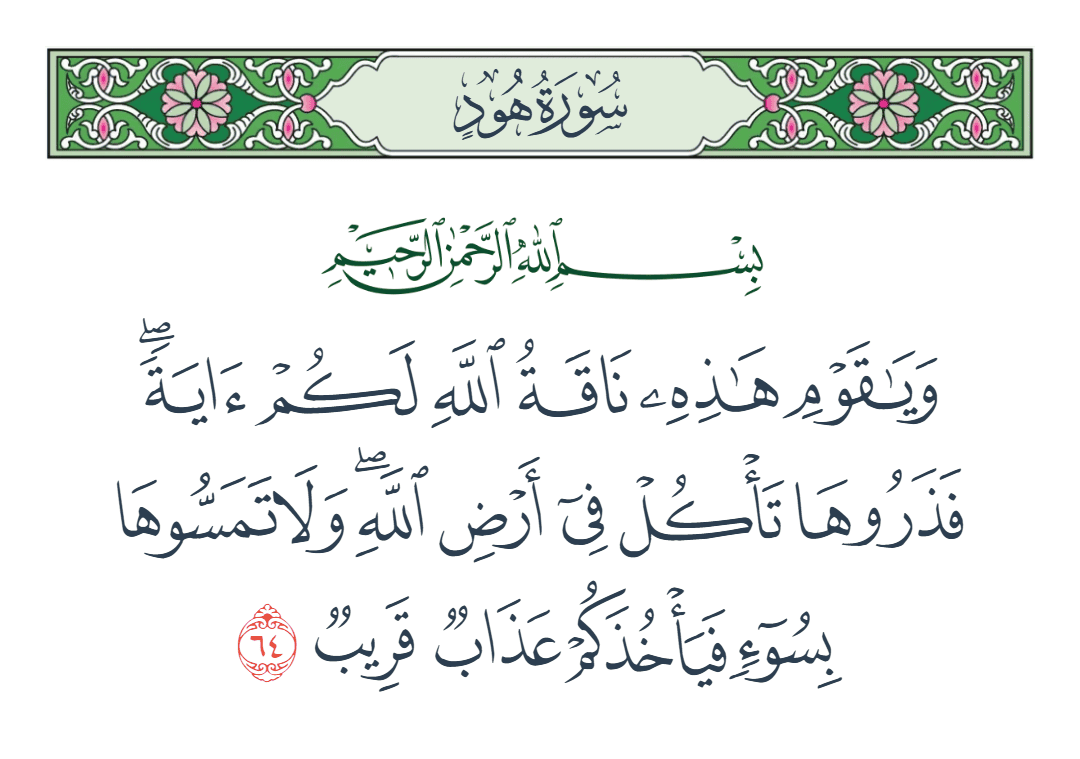 سُورَةُ هُودٍ
بِسْمِ ٱللَّهِ ٱلرَّحْمَٰنِ ٱلرَّحِيمِ
وَيَٰقَوْمِ هَٰذِهِۦ نَاقَةُ ٱللَّهِ لَكُمْ ءَايَةًۖ
فَذَرُوهَا تَأْكُلْ فِىٓ أَرْضِ ٱللَّهِۖ وَلَا تَمَسُّوهَا
بِسُوٓءٍ فَيَأْخُذَكُمْ عَذَابٌ قَرِيبٌ ٦٤